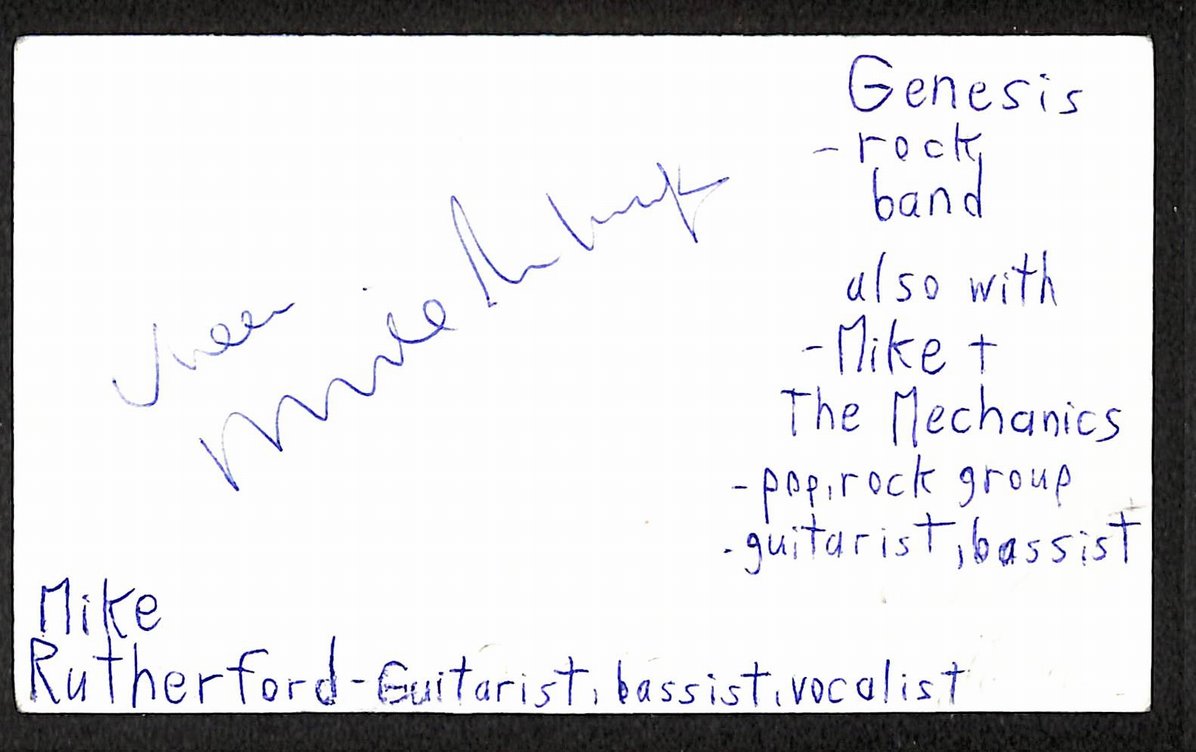 Genesis
- rock
band
also with
- Mike +
The Mechanics
- pop, rock group
- guitarist, bassist
Mike
Mike
Rutherford - Guitarist, bassist, vocalist